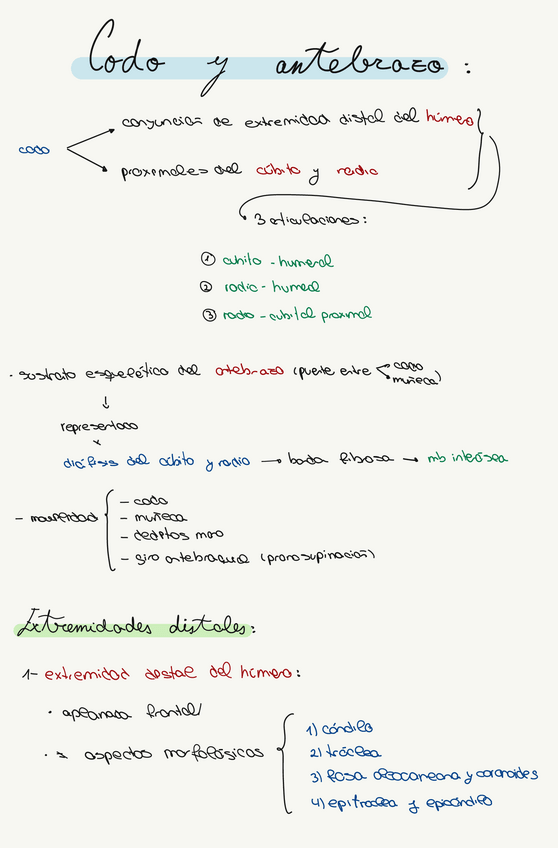 Codo y antebrazo :
conjunción de extremidad distal del húmero
codo
proximales del cúbito y radio
3 articulaciones:
① cubito - humeral
② radio - humeral
③ radio - cubital proximal
· sustrato esquelético del antebrazo (puente entre codo
muñeca)
↓
representado
diáfisis del cúbito y radio → banda fibrosa → mb interósea
- movilidad
- codo
- muñeca
- deditos mano
- giro antebraquial (pronosupinación)
Extremidades distales:
1- extremidad distal del húmero:
· aplanada frontal
· aspectos morfológicos
1) cóndilo
2) tróclea
3) fosa olecraneana y coronoides
4) epitroclea y epicóndilo